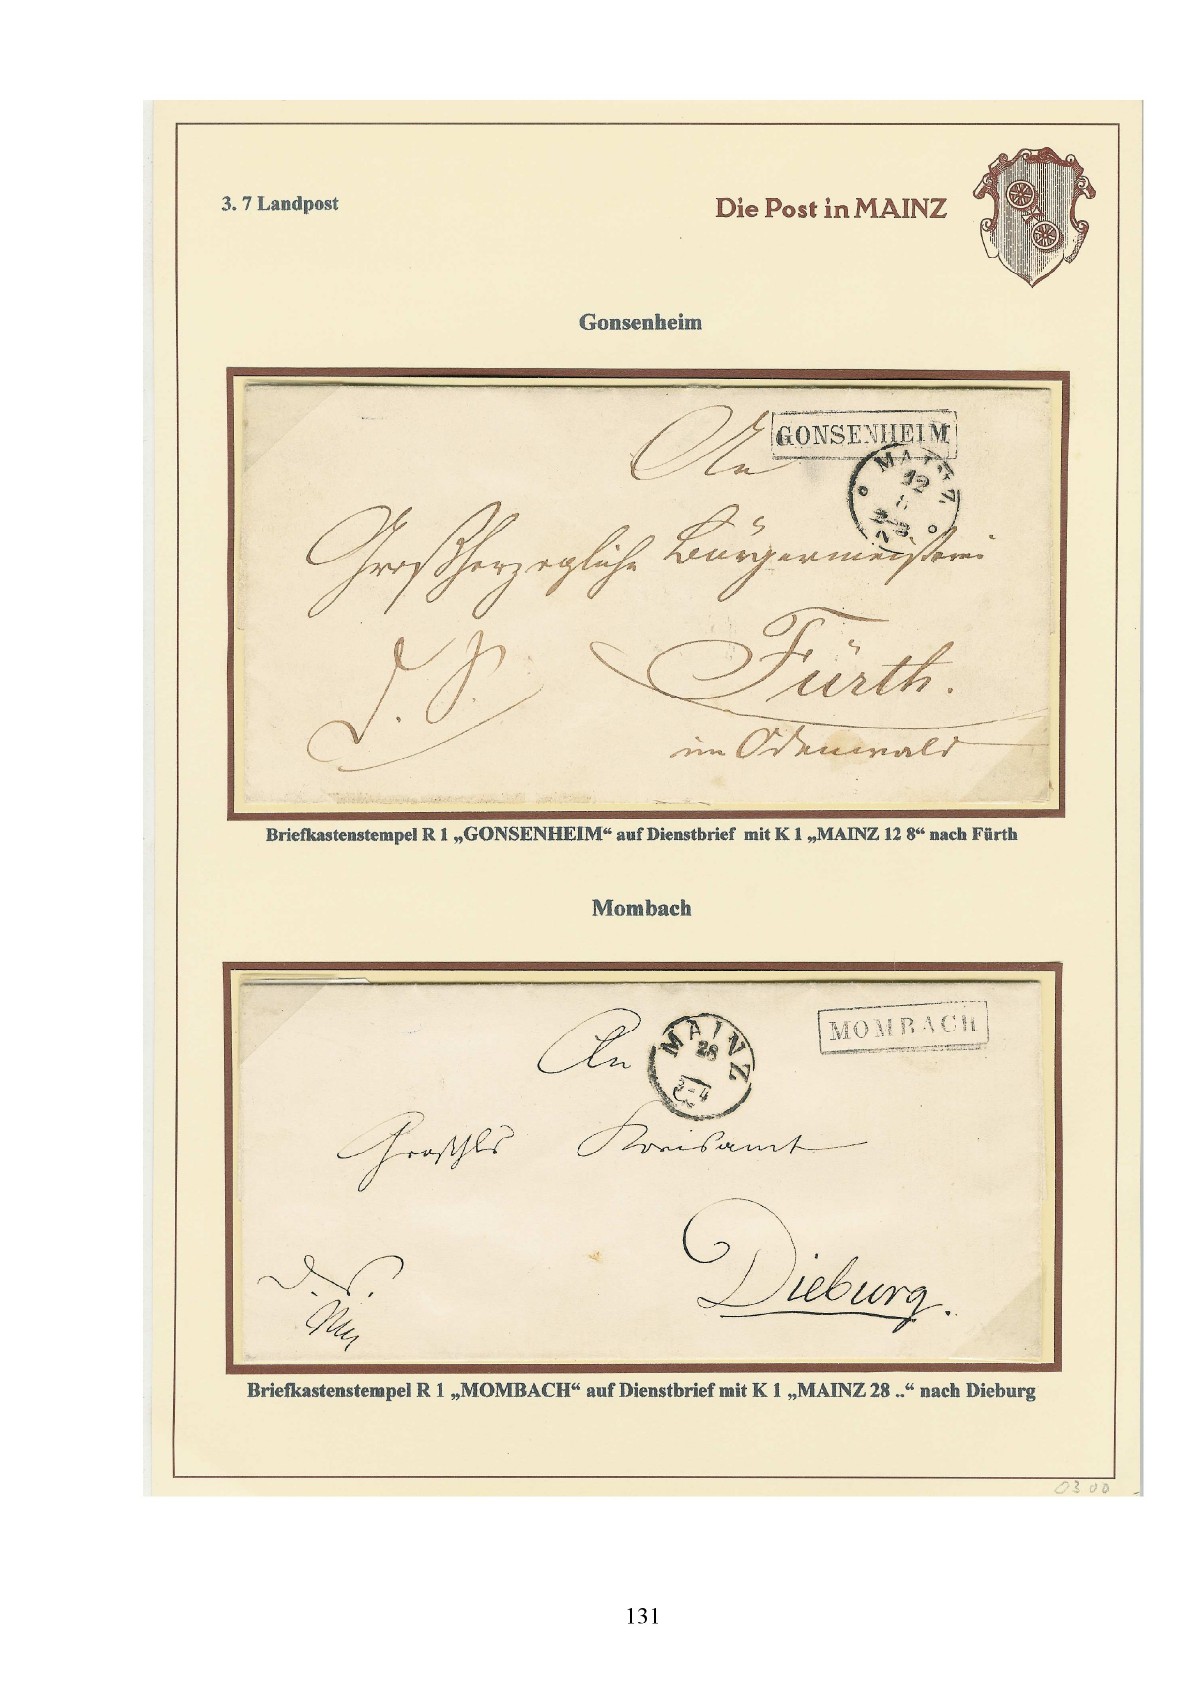 3. 7 Landpost
Die Post in MAINZ
Gonsenheim
An
GONSENHEIM
MAINZ
12
8
Großherzogliche Bürgermeisterei
D. S.
Fürth.
im Odenwald
Briefkastenstempel R 1 „GONSENHEIM“ auf Dienstbrief mit K 1 „MAINZ 12 8“ nach Fürth
Mombach
An
MAINZ
28
MOMBACH
Kreisamt
Dieburg.
D. S.
Briefkastenstempel R 1 „MOMBACH“ auf Dienstbrief mit K 1 „MAINZ 28 ..“ nach Dieburg
03 00
131